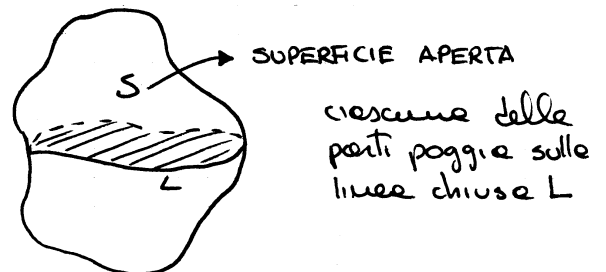 S
SUPERFICIE APERTA
ciascuna delle
parti poggia sulla
linea chiusa L
L